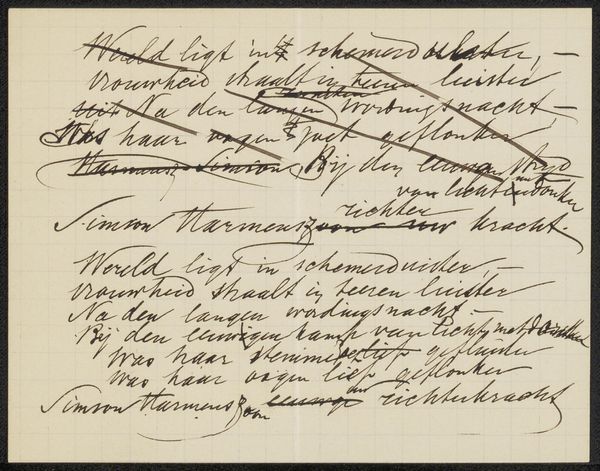 Wereld ligt in 't schemerduister, —
vrouwheid straalt in teeren luister
uit Na den langen wordingsnacht, —
Was haar oogen 't geflonker
Harmensz Simson, Bij den strijd
van licht en donker
Simson Harmenszoon richter kracht.
Wereld ligt in schemerduister, —
vrouwheid straalt in teeren luister
Na den langen wordingsnacht. —
Bij den eeuwigen kamp van licht met
Was haar geflonker
Was haar oogen liep geflonker
Simson Harmenszoon eeuwge richterkracht